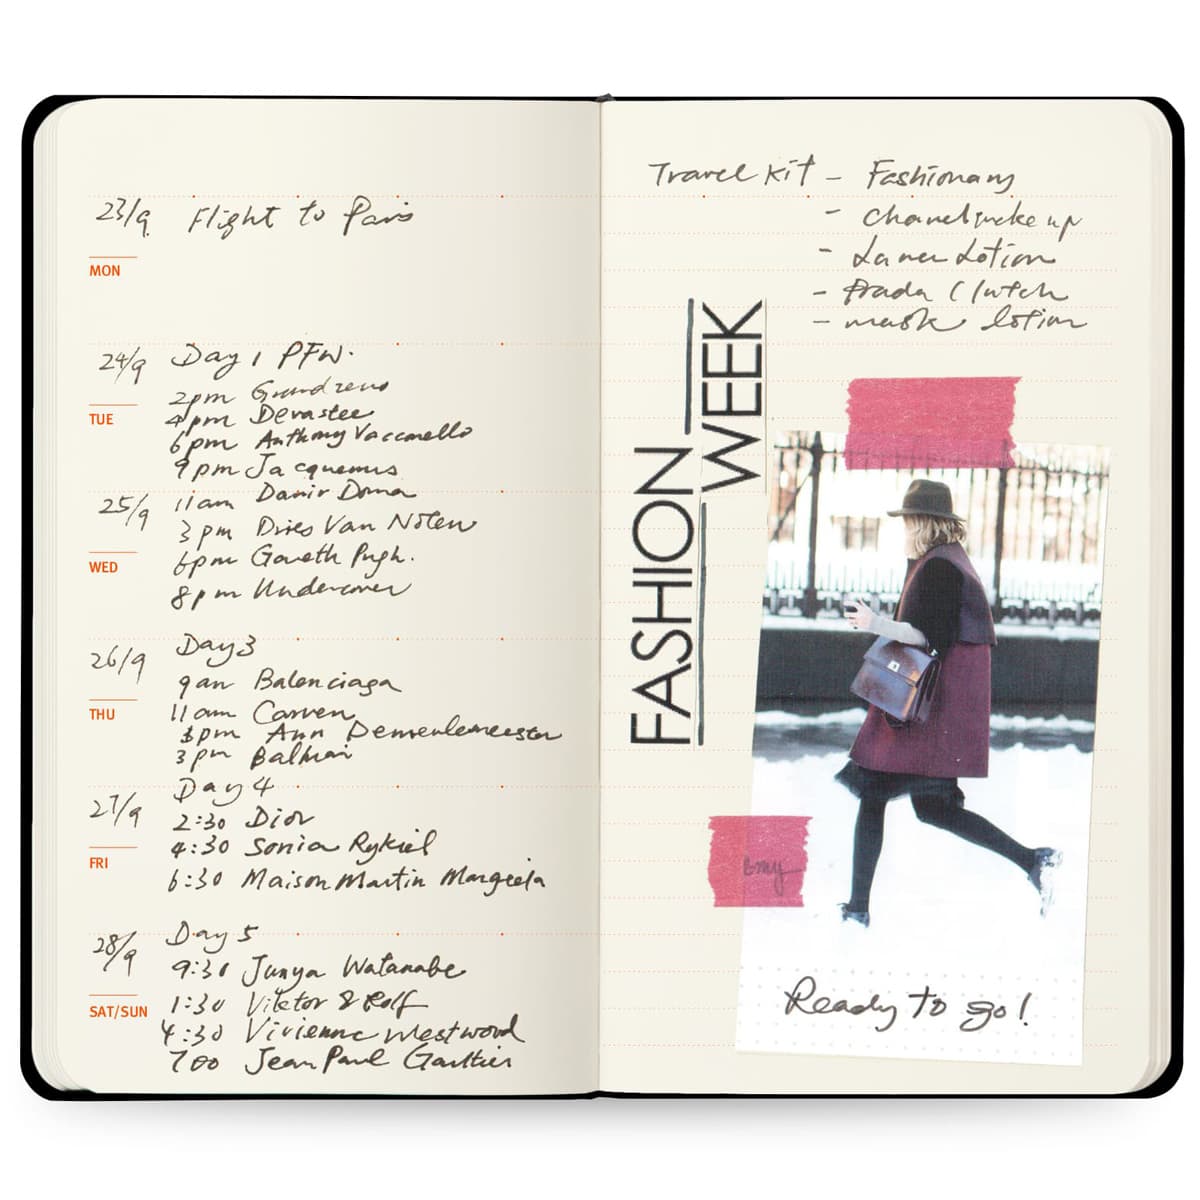 23/9 Flight to Paris
MON
24/9 Day 1 PFW.
2pm
TUE
4pm Devastee
6pm Anthony Vaccarello
9pm Jacquemus
25/9 11am Damir Doma
3pm Dries Van Noten
WED
6pm Gareth Pugh.
8pm Undercover
26/9 Day 3
9am Balenciaga
THU
11am Carven
pm Ann Demeulemeester
3pm Balmain
27/9 Day 4
2:30 Dior
4:30 Sonia Rykiel
FRI
6:30 Maison Martin Margiela
28/9 Day 5
9:30 Junya Watanabe
SAT/SUN
1:30 Viktor & Rolf
4:30 Vivienne Westwood
700 Jean Paul Gaultier
Travel Kit - Fashionary
- Chanel make up
- Lotion
- Prada Clutch
- mask lotion
FASHION
WEEK
Ready to go!